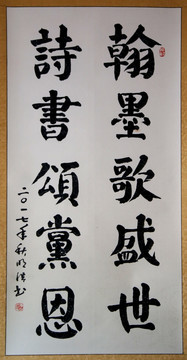 翰墨歌盛世
詩書頌黨恩
二〇一七年秋明洪书